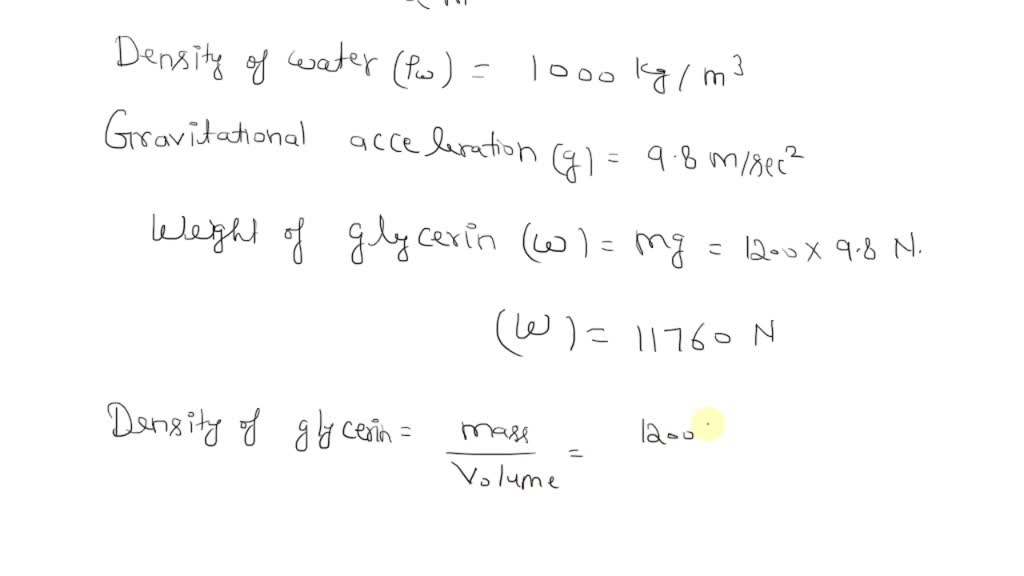 Density of water (ρw) = 1000 kg/m³
Gravitational acceleration (g) = 9.8 m/sec²
Weight of glycerin (w) = mg = 1200 x 9.8 N.
(W) = 11760 N
Density of glycerin = mass / Volume = 1200